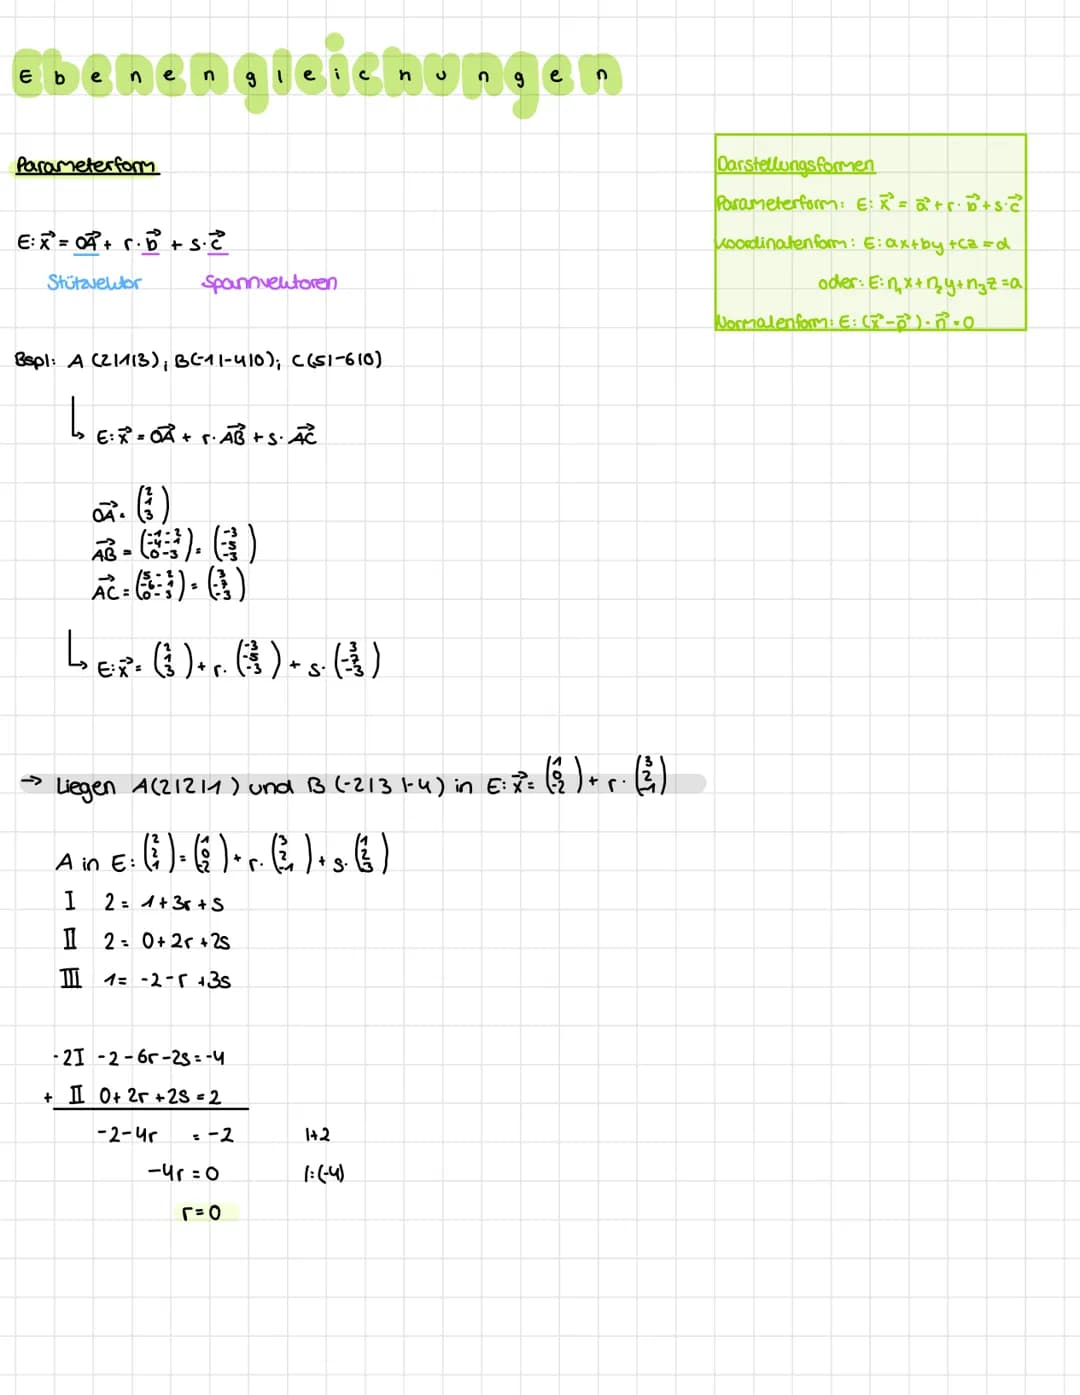 Ebenengleichungen
Parameterform
E: x⃗ = OA⃗ + r · b⃗ + s · c⃗
Stützvektor Spannvektoren
Darstellungsformen
Parameterform: E: x⃗ = a⃗ + r · b⃗ + s · c⃗
Koordinatenform: E: ax+by+cz=d
oder: E: n₁x+n₂y+n₃z=a
Normalenform: E: (x⃗-p⃗) · n⃗ = 0
Bspl: A(2|1|3); B(-1|-4|0); C(5|-6|0)
↳ E: x⃗ = OA⃗ + r · AB⃗ + s · AC⃗
OA⃗ = (2 1 3)
AB⃗ = (-1-2 -4-1 0-3) = (-3 -5 -3)
AC⃗ = (5-2 -6-1 0-3) = (3 -7 -3)
↳ E: x⃗ = (2 1 3) + r · (-3 -5 -3) + s · (3 -7 -3)
→ Liegen A(2|2|1) und B(-2|3|-4) in E: x⃗ = (1 0 -2) + r · (3 2 -1)
A in E: (2 2 1) = (1 0 -2) + r · (3 2 -1) + s · (1 2 3)
I 2 = 1+3r+s
II 2 = 0+2r+2s
III 1 = -2-r+3s
-2I -2-6r-2s=-4
+ II 0+2r+2s=2
-2-4r = -2 |+2
-4r=0 |:(-4)
r=0